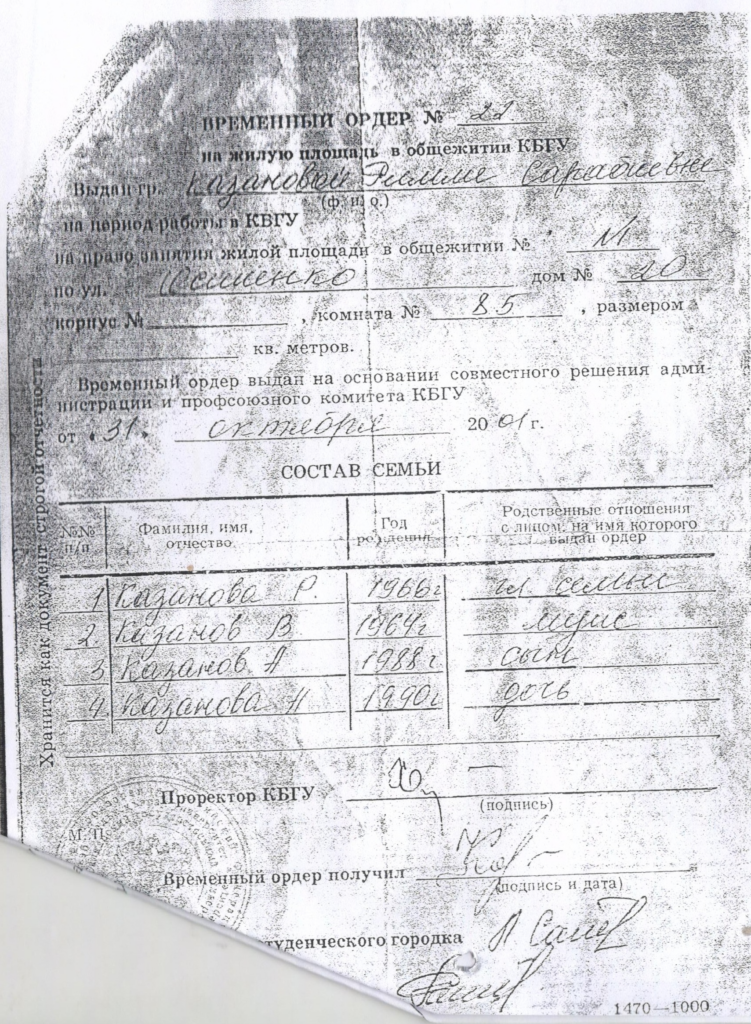 ВРЕМЕННЫЙ ОРДЕР № 22
на жилую площадь в общежитии КБГУ
Выдан гр. Казановой Римме Сарабиевне
(ф. и. о.)
на период работы в КБГУ
на право занятия жилой площади в общежитии № №1
по ул. Осипенко дом № 20
корпус № , комната № 85 , размером
кв. метров.
Временный ордер выдан на основании совместного решения адми-
нистрации и профсоюзного комитета КБГУ
от «31» октября 2001 г.
СОСТАВ СЕМЬИ
№№ п/п Фамилия, имя, отчество Год рождения Родственные отношения с лицом, на имя которого выдан ордер
1 Казанова Р. 1966г гл. семьи
2 Казанов В 1964г муж
3 Казанов А 1988г сын
4 Казанова И 1990г дочь
Хранится как документ строгой отчетности
Проректор КБГУ
(подпись)
М. П.
Временный ордер получил
(подпись и дата)
студенческого городка
1470—1000